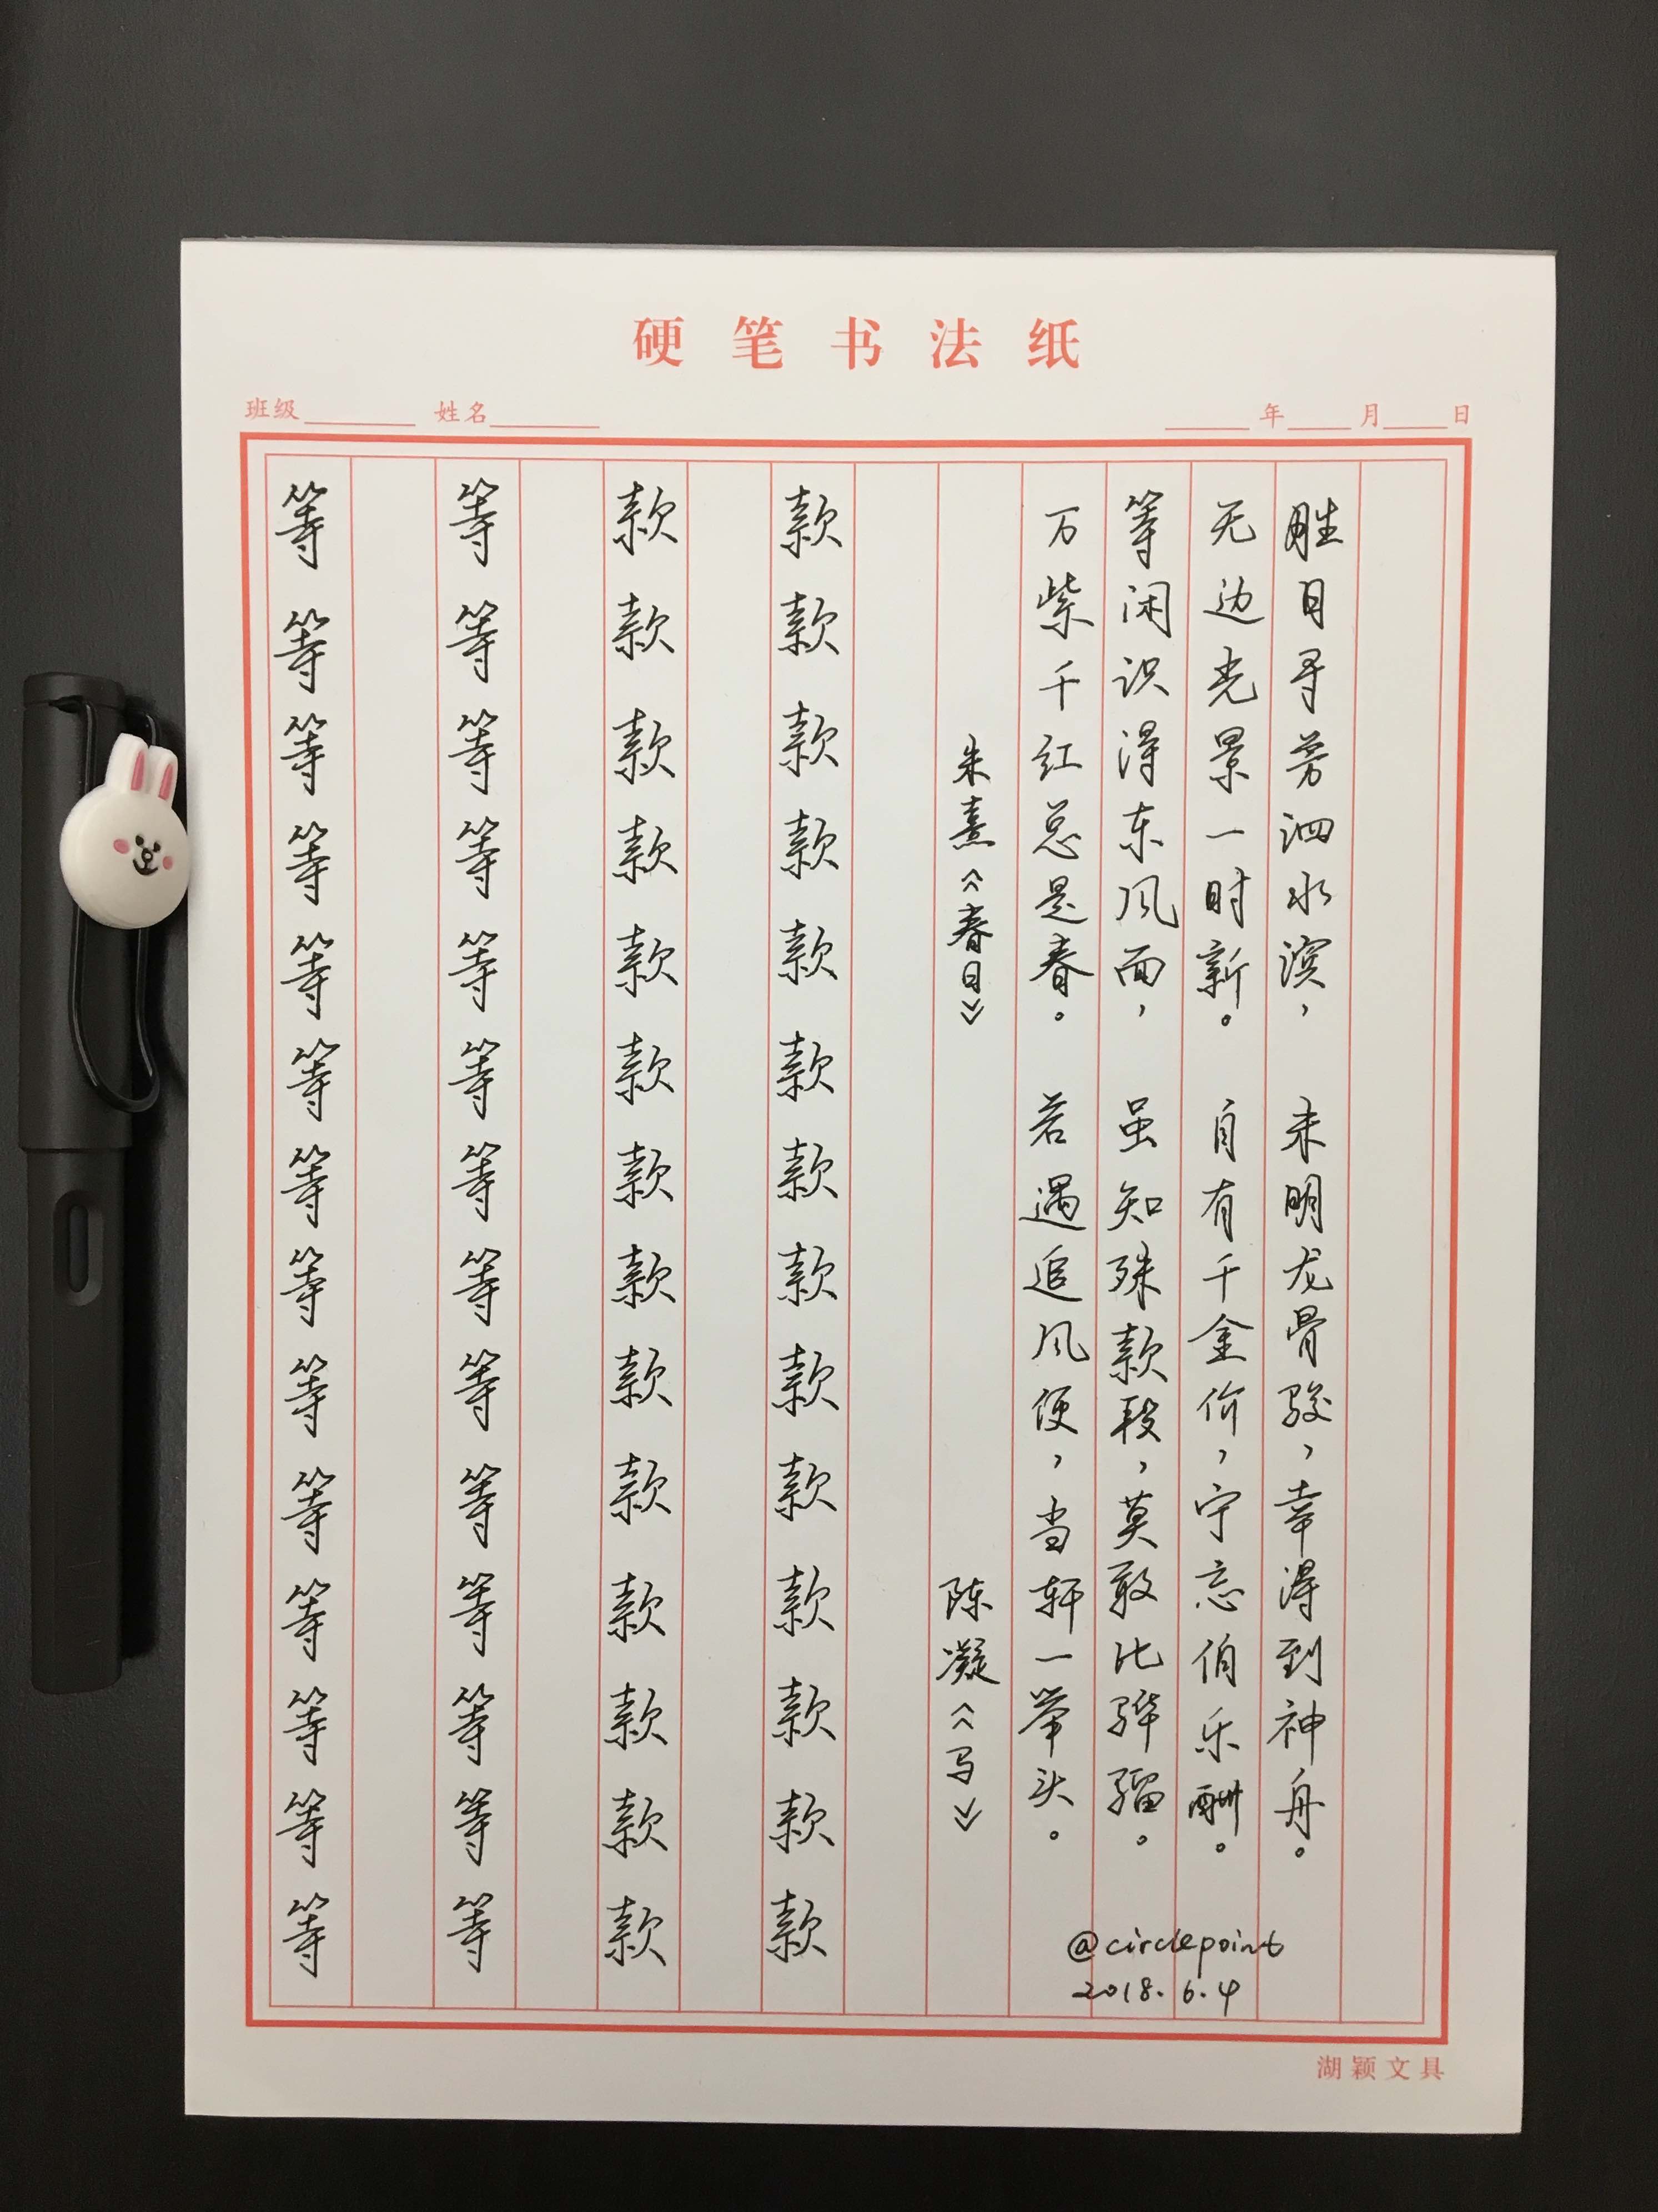 硬笔书法纸
班级 姓名 年 月 日
胜日寻芳泗水滨， 未明龙骨骏，幸得到神舟。
无边光景一时新。 自有千金价，宁忘伯乐酬。
等闲识得东风面， 虽知殊款段，莫敢比骅骝。
万紫千红总是春。 若遇追风便，当轩一举头。
朱熹《春日》 陈凝《马》
@circlepoint
2018.6.4
款款款款款款款款款款款款款款
款款款款款款款款款款款款款款
等等等等等等等等等等等等等等
等等等等等等等等等等等等等等
湖颖文具